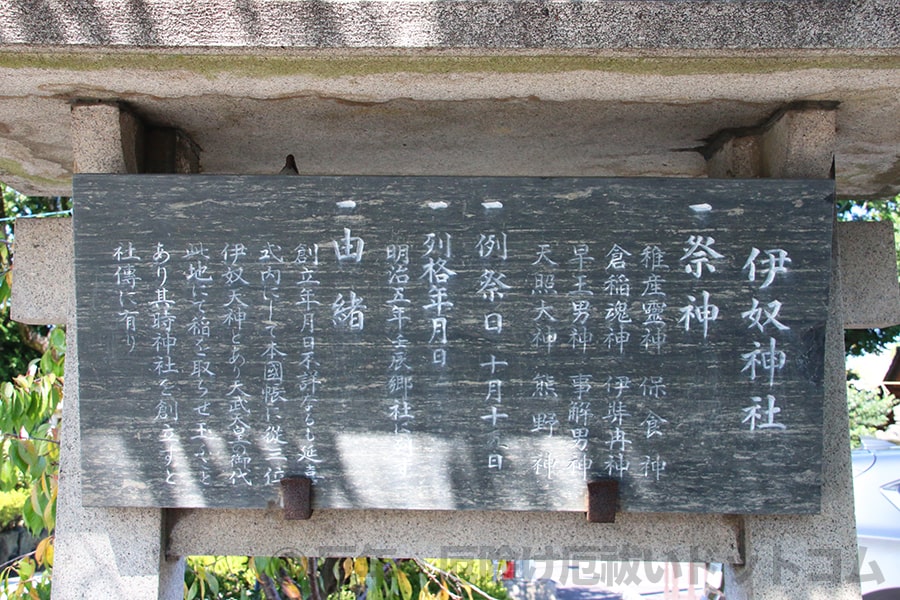 伊奴神社
一 祭神
稚産霊神 保食神
倉稲魂神 伊弉冉神
早玉男神 事解男神
天照大神 熊野神
一 例祭日 十月十 日
一 列格年月日
明治五年壬辰郷社に
一 由緒
創立年月日不詳なるも延喜
式内にして本國帳に從三位
伊奴天神とあり天武天皇の御代
此地して稲を取らせ玉 こと
あり其時神社を創立 すと
社傳に有り
厄除け厄祓いドットコム